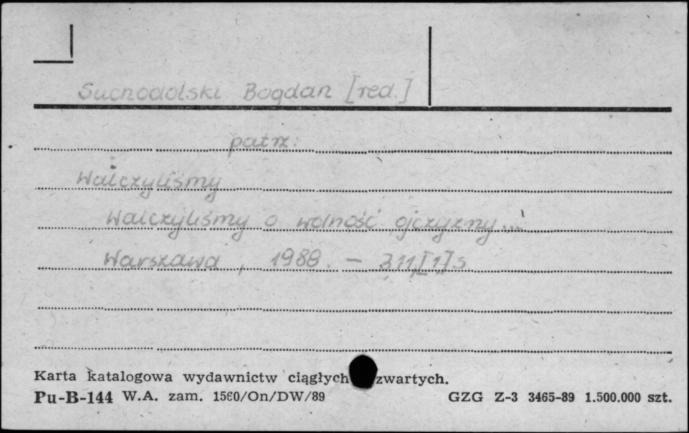 Suchodolski Bogdan [red.]
patrz:
Walczyliśmy
Walczyliśmy o wolność ojczyzny...
Warszawa, 1988. - 311,[1]s
Karta katalogowa wydawnictw ciągłych zwartych.
Pu-B-144 W.A. zam. 1560/On/DW/89 GZG Z-3 3465-89 1.500.000 szt.